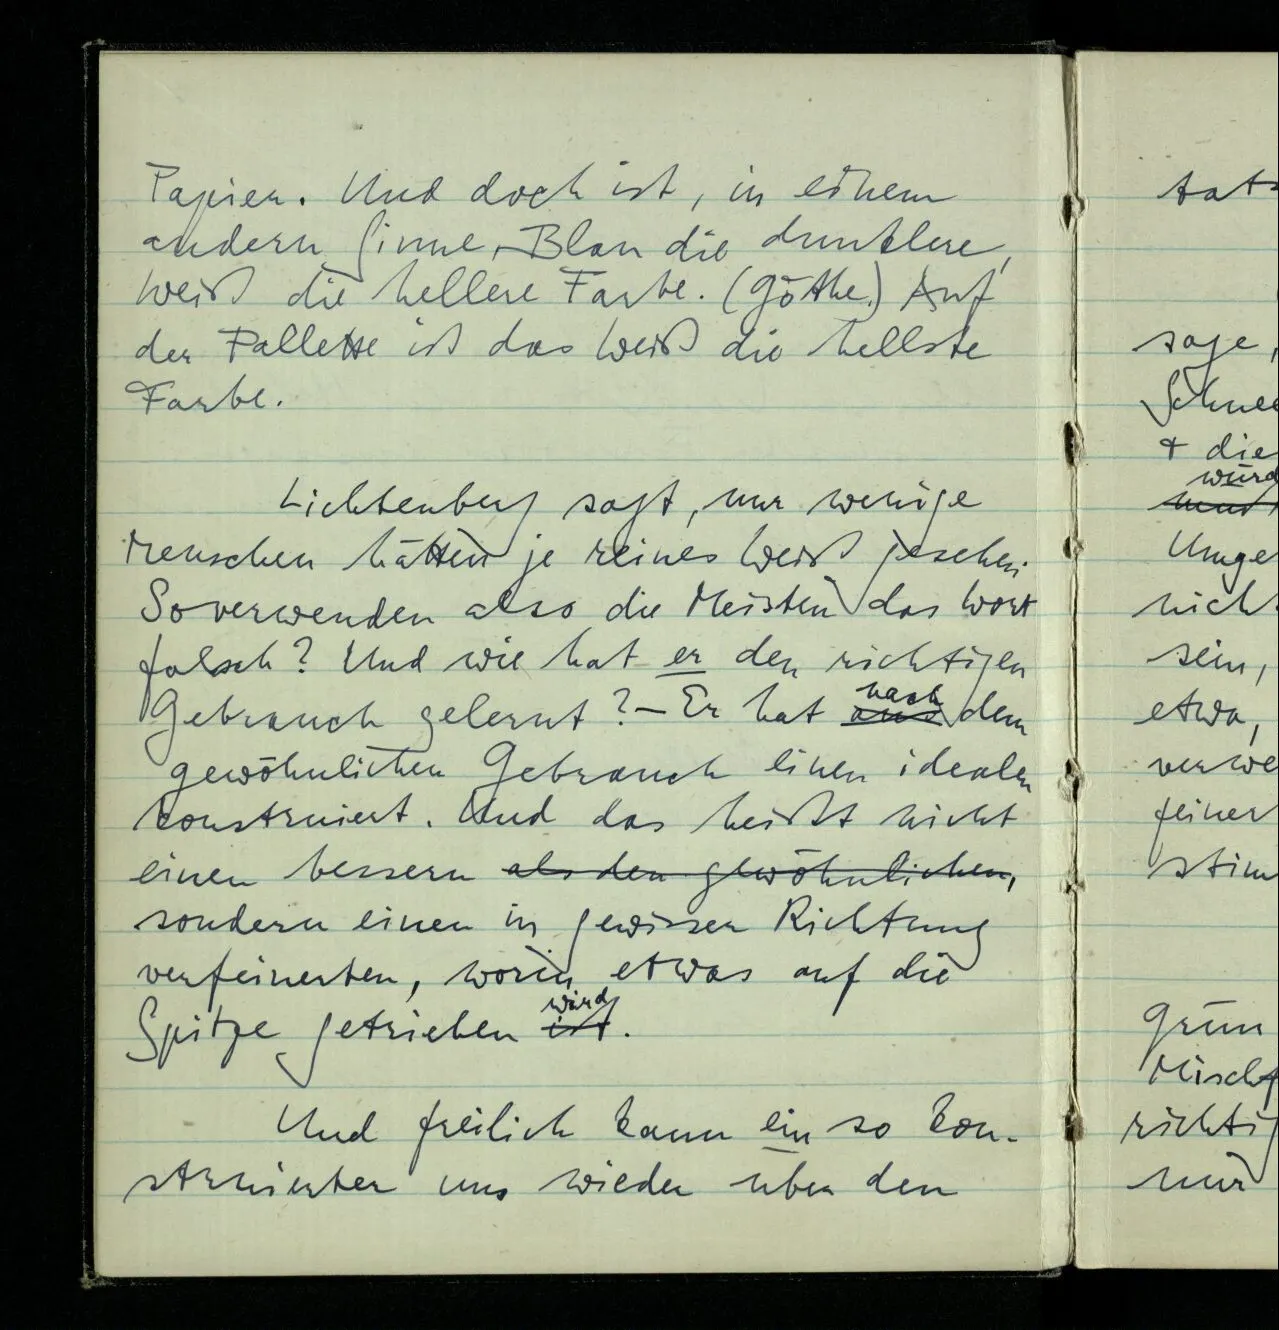 Papier. Und doch ist, in einem
andern Sinne, Blau die dunklere,
Weiß die hellere Farbe. (Göthe.) Auf
der Pallette ist das Weiß die hellste
Farbe.
Lichtenberg sagt, nur wenige
Menschen hätten je reines Weiß gesehen.
So verwenden also die Meisten das Wort
falsch? Und wie hat er den richtigen
Gebrauch gelernt? – Er hat nach dem
gewöhnlichen Gebrauch einen idealen
konstruiert. Und das heißt nicht
einen bessern als den gewöhnlichen,
sondern einen in gewisser Richtung
verfeinerten, worin etwas auf die
Spitze getrieben ist wird.
Und freilich kann ein so kon-
struierter uns wieder über den
tats
sage,
Schnee
+ die
wurd
Umge
nich
sein,
etwa,
verwe
feiner
stim
Grün
Misch
richtig
nur